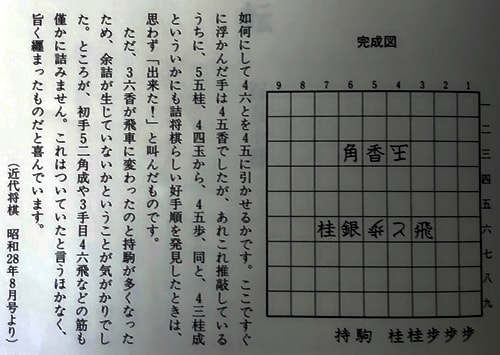 完成図
9 8 7 6 5 4 3 2 1
一
二
三
四
五
六
七
八
九
角香王
桂銀歩と飛
持駒 桂桂歩歩歩
如何にして4六とを4五に引かせるかです。ここですぐ
に浮かんだ手は4五香でしたが、あれこれ推敲している
うちに、5五桂、4四玉から、4五歩、同と、4三桂成
といういかにも詰将棋らしい好手順を発見したときは、
思わず「出来た!」と叫んだものです。
ただ、3六香が飛車に変わったのと持駒が多くなった
ため、余詰が生じていないかということが気がかりでし
た。ところが、初手5二角成や3手目4六飛などの筋も
僅かに詰みません。これはついていたと言うほかなく、
旨く纒まったものだと喜んでいます。
(近代将棋 昭和28年8月号より)